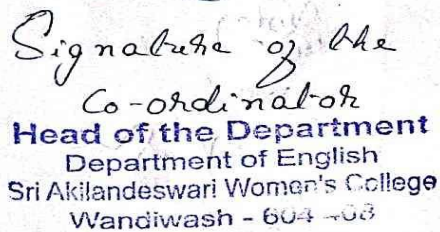 Signature of the
Co-ordinator
Head of the Department
Department of English
Sri Akilandeswari Women's College
Wandiwash - 604 408